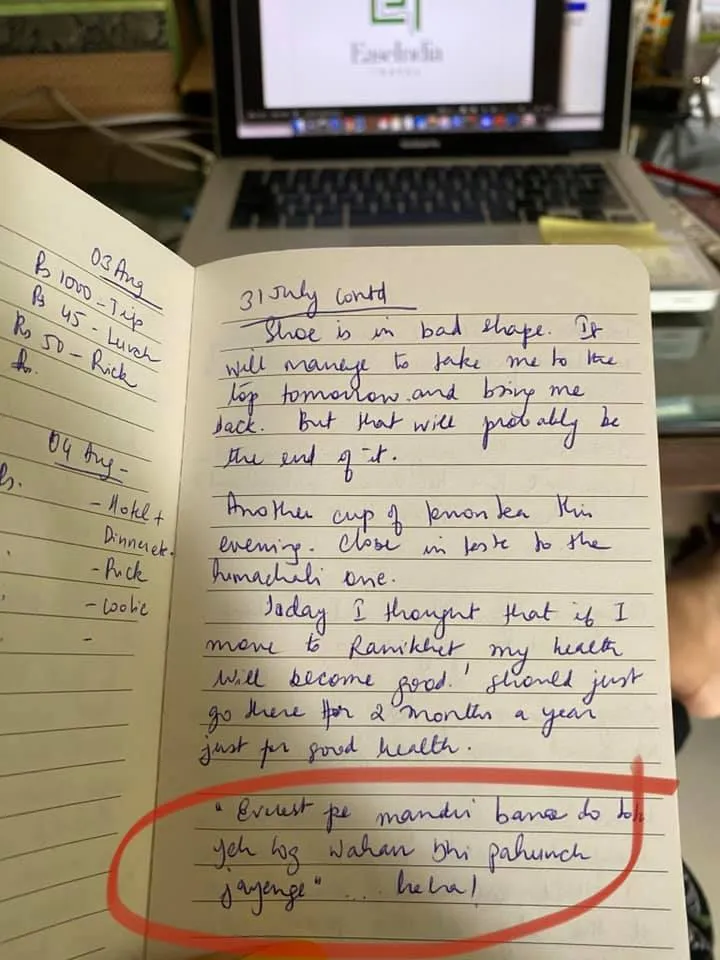 EaseIndia
TRAVEL
03 Aug
Rs 1000 - Trip
Rs 45 - Lunch
Rs 50 - Rick
Rs.
04 Aug -
Rs.
- Hotel +
Dinner etc.
- Rick
- Coolie
-
31 July contd
Shoe is in bad shape. It
will manage to take me to the
top tomorrow and bring me
back. But that will probably be
the end of it.
Another cup of lemon tea this
evening. Close in taste to the
himachali one.
Today I thought that if I
move to Ranikhet my health
will become good. I should just
go there for 2 months a year
just for good health.
"Everest pe mandir banva do toh
yeh log wahan bhi pahunch
jayenge" ... haha!